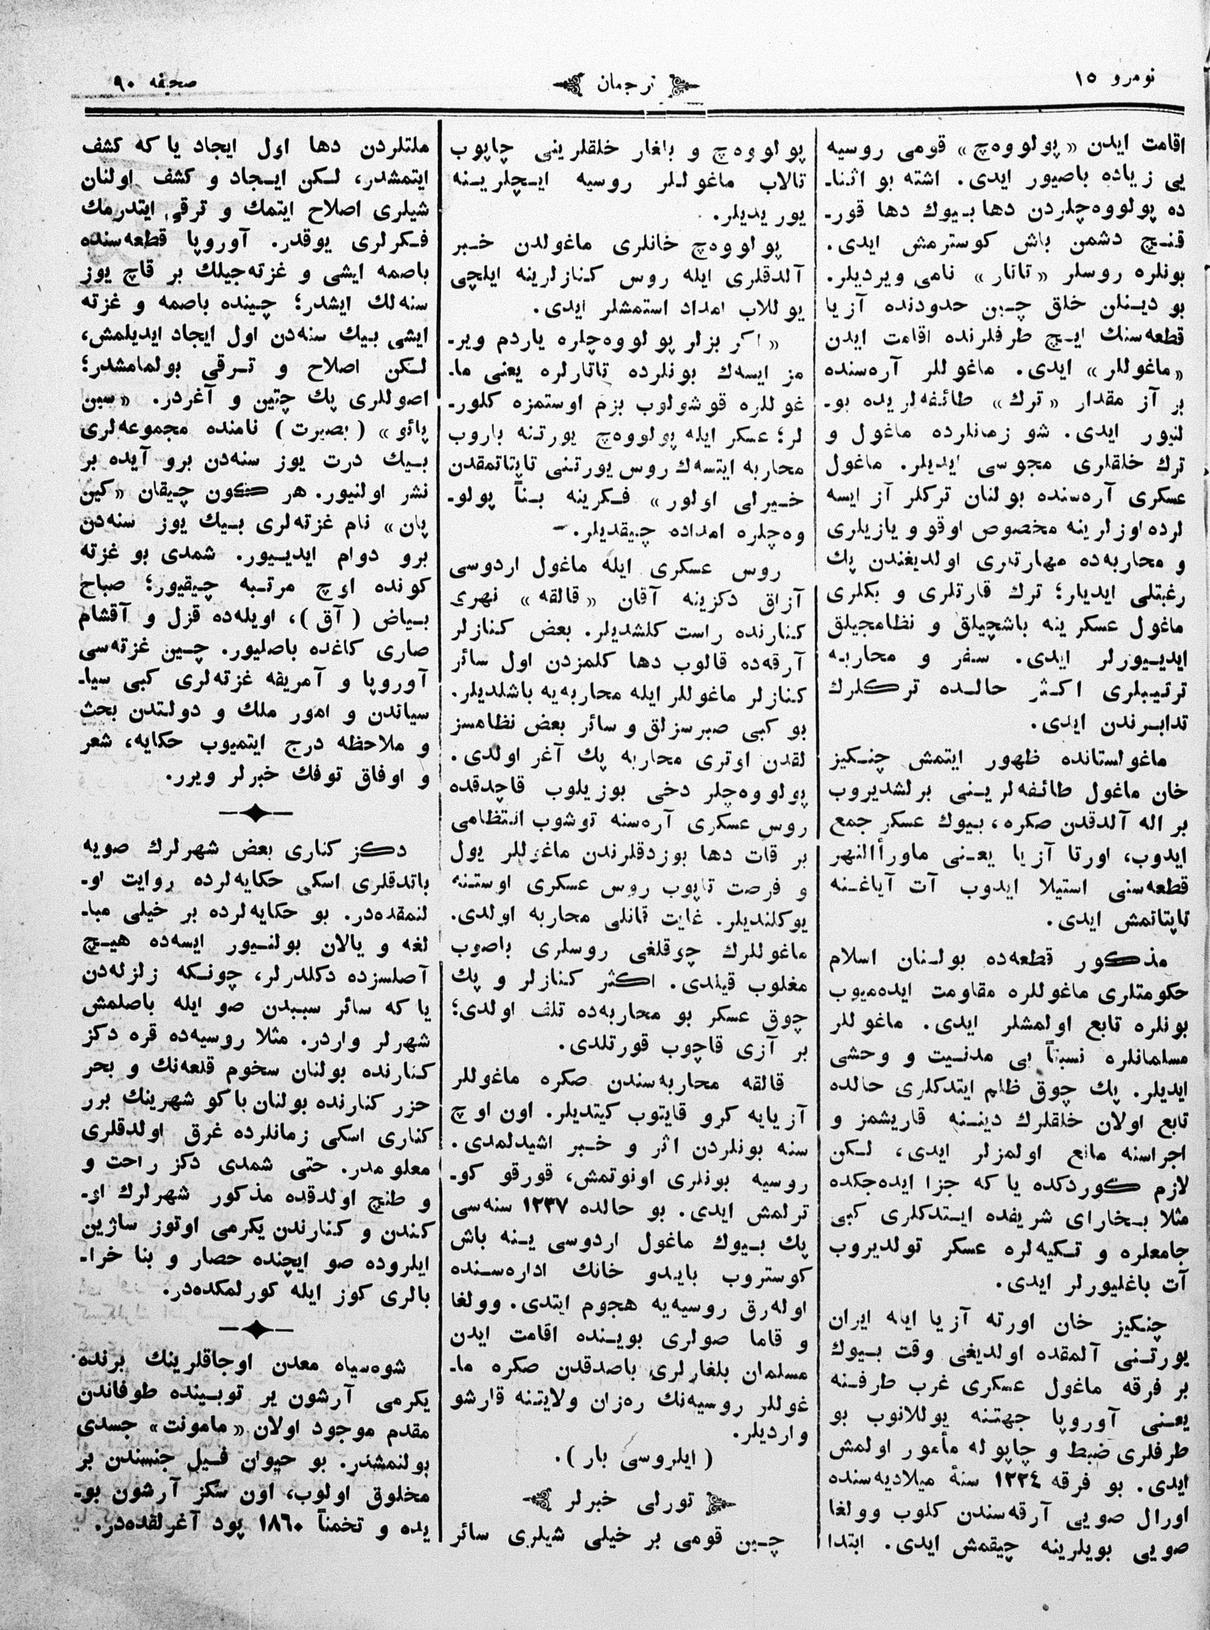 نومرو ١٥
ترجمان
صحیفه ٩٠
اقامت ایدن «پولووەچ» قومی روسیه
یی زیاده باصیور ایدی. اشته بو اثنا-
ده پولووەچلردن دها بیوك دها قور-
قنچ دشمن باش کوسترمش ایدی.
بونلره روسلر «تاتار» نامی ویردیلر.
بو دینلن خلق چین حدودنده آزیا
قطعه‌سنك ایچ طرفلرنده اقامت ایدن
«ماغوللر» ایدی. ماغوللر آره‌سنده
بر آز مقدار «ترك» طائفه‌لریده بو-
لنیور ایدی. شو زمانلرده ماغول و
ترك خلقلری مجوسی ایدیلر. ماغول
عسکری آره‌سنده بولنان ترکلر آز ایسه
لرده اوزلرینه مخصوص اوقو و یازیلری
و محاربه‌ده مهارتلری اولدیغندن پك
رغبتلی ایدیلر؛ ترك قارتلری و بکلری
ماغول عسکرینه باشچیلق و نظامجیلق
ایدییورلر ایدی. سفر و محاربه
ترتیبلری اکثر حالده ترکلرك
تدابرندن ایدی.
ماغولستانده ظهور ایتمش چنکیز
خان ماغول طائفه‌لرینی برلشدیروب
بر اله آلدقدن صکره، بیوك عسکر جمع
ایدوب، اورتا آزیا یعنی ماورأالنهر
قطعه‌سنی استیلا ایدوب آت آیاغنه
تاپتاتمش ایدی.
مذکور قطعه‌ده بولنان اسلام
حکومتلری ماغوللره مقاومت ایده‌میوب
بونلره تابع اولمشلر ایدی. ماغوللر
مسلمانلره نسبتاً بی مدنیت و وحشی
ایدیلر. پك چوق ظلم ایتدکلری حالده
تابع اولان خلقلرك دیننه قاریشمز و
اجراسنه مانع اولمزلر ایدی، لکن
لازم کوردکده یا که جزا ایده‌جکده
مثلا بخارای شریفده ایتدکلری کبی
جامعلره و تکیه‌لره عسکر تولدیروب
آت باغلیورلر ایدی.
چنکیز خان اورته آزیا ایله ایران
یورتنی آلمقده اولدیغی وقت بیوك
بر فرقه ماغول عسکری غرب طرفنه
یعنی آوروپا جهتنه یوللانوب بو
طرفلری ضبط و چاپوله مأمور اولمش
ایدی. بو فرقه ١٢٢٤ سنهٔ میلادیه‌سنده
اورال صویی آرقه‌سندن کلوب وولغا
صویی بویلرینه چیقمش ایدی. ابتدا
پولووەچ و بلغار خلقلرینی چاپوب
تالاب ماغوللر روسیه ایچلرینه
یوریدیلر.
پولووەچ خانلری ماغولدن خبر
آلدقلری ایله روس کنازلرینه ایلچی
یوللاب امداد استمشلر ایدی.
«اکر بزلر پولووەچلره یاردم ویر-
مز ایسەك بونلرده تاتارلره یعنی ما-
غوللره قوشولوب بزم اوستمزه کلور-
لر؛ عسکر ایله پولووەچ یورتنه باروب
محاربه ایتسەك روس یورتنی تاپتاتمقدن
خیرلی اولور» فکرینه بناً پولو-
وەچلره امداده چیقدیلر.
روس عسکری ایله ماغول اردوسی
آزاق دکزینه آقان «قالقه» نهری
کنارنده راست کلشدیلر. بعض کنازلر
آرقه‌ده قالوب دها کلمزدن اول سائر
کنازلر ماغوللر ایله محاربه‌یه باشلدیلر.
بو کبی صبرسزلق و سائر بعض نظامسز
لقدن اوتری محاربه پك آغر اولدی.
پولووەچلر دخی بوزیلوب قاچدقده
روس عسکری آره‌سنه توشوب انتظامی
بر قات دها بوزدقلرندن ماغوللر یول
و فرصت تاپوب روس عسکری اوستنه
یوکلندیلر. غایت قانلی محاربه اولدی.
ماغوللرك چوقلغی روسلری باصوب
مغلوب قیلدی. اکثر کنازلر و پك
چوق عسکر بو محاربه‌ده تلف اولدی؛
بر آزی قاچوب قورتلدی.
قالقه محاربه‌سندن صکره ماغوللر
آزیایه کرو قایتوب کیتدیلر. اون اوچ
سنه بونلردن اثر و خبر اشیدلمدی.
روسیه بونلری اونوتمش، قورقو کو-
ترلمش ایدی. بو حالده ١٢٣٧ سنه‌سی
پك بیوك ماغول اردوسی ینه باش
کوستروب بایدو خانك اداره‌سنده
اوله‌رق روسیه‌یه هجوم ایتدی. وولغا
و قاما صولری بوینده اقامت ایدن
مسلمان بلغارلری باصدقدن صکره ما-
غوللر روسیه‌نك ره‌زان ولایتنه قارشو
واردیلر.
(ایلروسی بار).
تورلی خبرلر
چین قومی بر خیلی شیلری سائر
ملتلردن دها اول ایجاد یا که کشف
ایتمشدر، لکن ایجاد و کشف اولنان
شیلری اصلاح ایتمك و ترقی ایتدرمك
فکرلری یوقدر. آوروپا قطعه‌سنده
باصمه ایشی و غزته‌جیلك بر قاچ یوز
سنه‌لك ایشدر؛ چینده باصمه و غزته
ایشی بیك سنه‌دن اول ایجاد ایدیلمش،
لکن اصلاح و ترقی بولمامشدر؛
اصوللری پك چتین و آغردر. «سین
پائو» (بصیرت) نامنده مجموعه‌لری
بیك درت یوز سنه‌دن برو آیده بر
نشر اولنیور. هر کون چیقان «کین
پان» نام غزته‌لری بیك یوز سنه‌دن
برو دوام ایدییور. شمدی بو غزته
کونده اوچ مرتبه چیقیور؛ صباح
بیاض (آق)، اویله‌ده قزل و آقشام
صاری کاغده باصلیور. چین غزته‌سی
آوروپا و آمریقه غزته‌لری کبی سیا-
سیاندن و امور ملك و دولتدن بحث
و ملاحظه درج ایتمیوب حکایه، شعر
و اوفاق توفك خبرلر ویرر.
دکز کناری بعض شهرلرك صویه
باتدقلری اسکی حکایه‌لرده روایت او-
لنمقده‌در. بو حکایه‌لرده بر خیلی مبا-
لغه و یالان بولنیور ایسه‌ده هیچ
آصلسزده دکلدرلر، چونکه زلزله‌دن
یا که سائر سببدن صو ایله باصلمش
شهرلر واردر. مثلا روسیه‌ده قره دکز
کنارنده بولنان سخوم قلعه‌نك و بحر
حزر کنارنده بولنان باکو شهرینك برر
کناری اسکی زمانلرده غرق اولدقلری
معلومدر. حتی شمدی دکز راحت و
و طنچ اولدقده مذکور شهرلرك او-
کندن و کنارندن یکرمی اوتوز ساژین
ایلروده صو ایچنده حصار و بنا خرا-
بالری کوز ایله کورلمکده‌در.
شوه‌سیاه معدن اوجاقلرینك برنده
یکرمی آرشون یر توبینده طوفاندن
مقدم موجود اولان «مامونت» جسدی
بولنمشدر. بو حیوان فیل جنسندن بر
مخلوق اولوب، اون سکز آرشون بو-
یده و تخمناً ١٨٦٠ پود آغرلقده‌در.